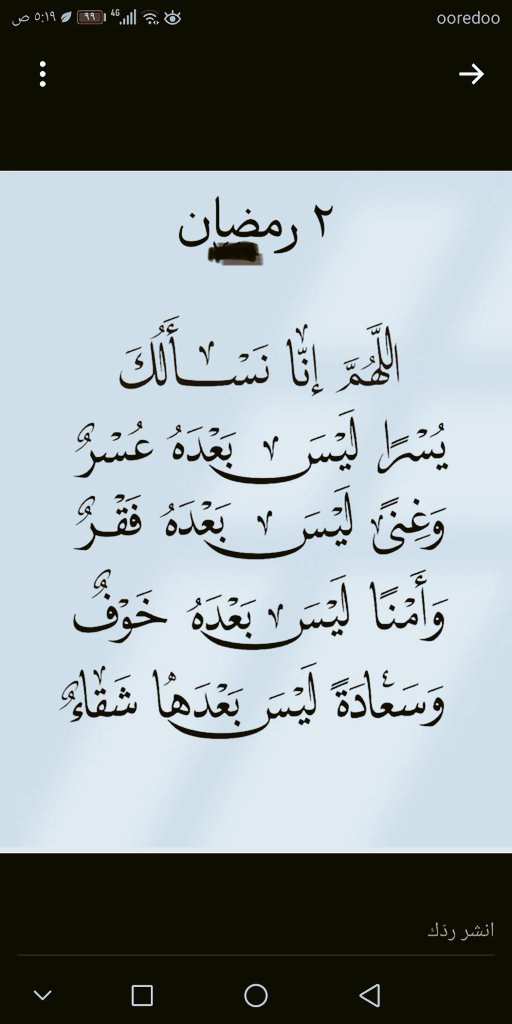 ooredoo ٥:١٩ ص ٩٩ 4G
٢ رمضان
اللَّهُمَّ إِنَّا نَسْأَلُكَ
يُسْرًا لَيْسَ بَعْدَهُ عُسْرٌ
وَغِنىً لَيْسَ بَعْدَهُ فَقْرٌ
وَأَمْنًا لَيْسَ بَعْدَهُ خَوْفٌ
وَسَعَادَةً لَيْسَ بَعْدَهَا شَقَاءٌ
انشر ردّك